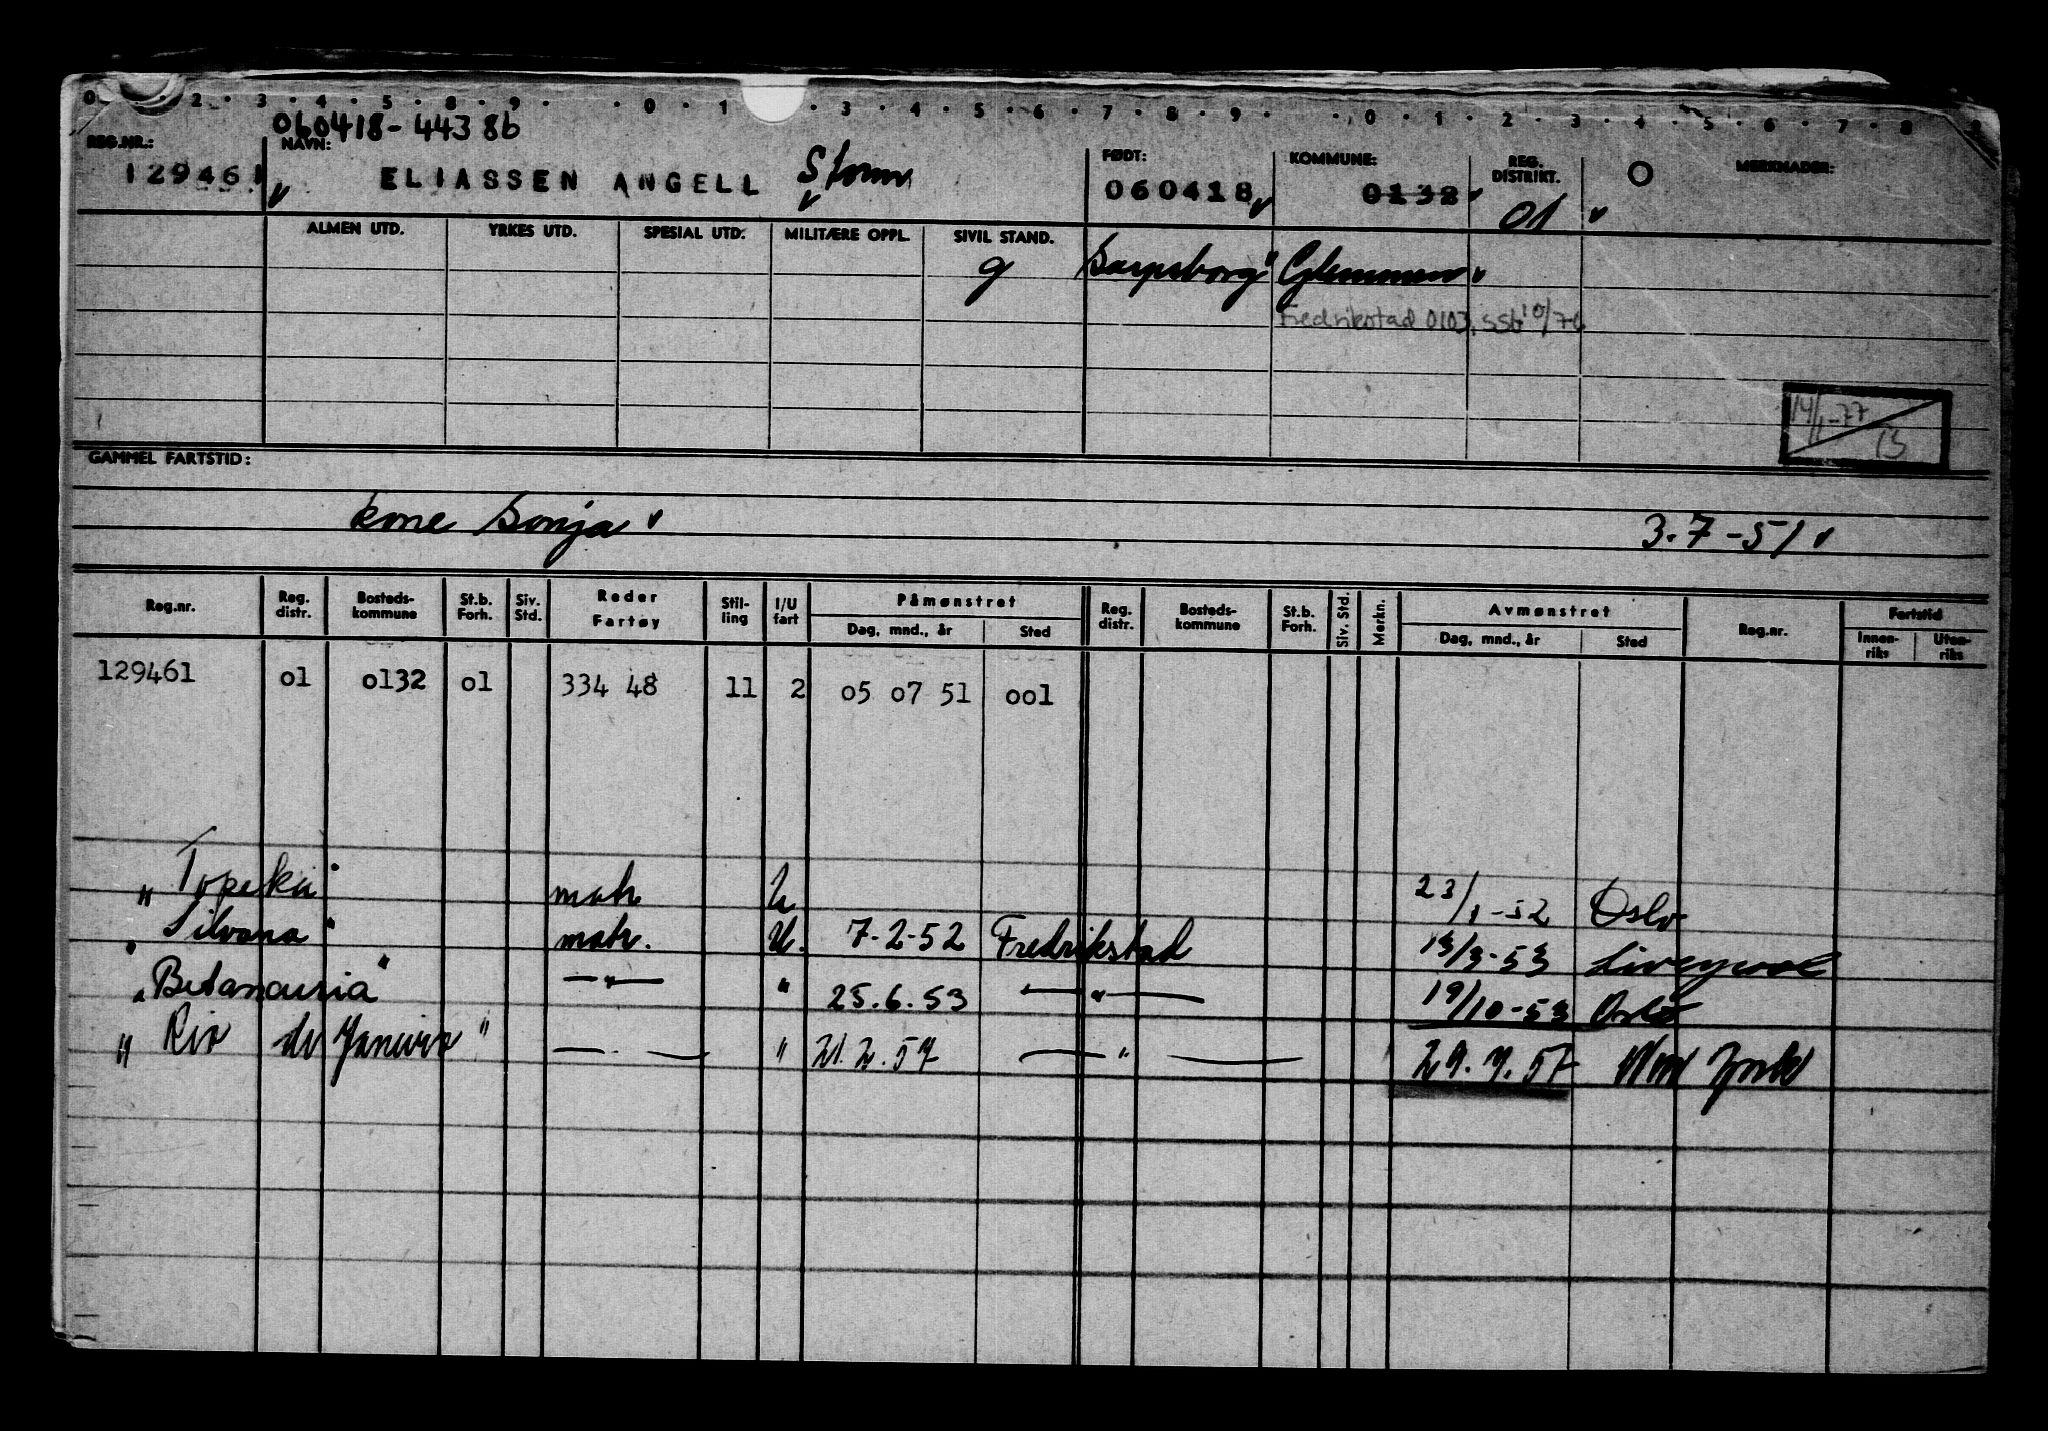 0 . 2 . 3 . 4 . 5 . 8 . 9 . . 0 . 1 . 3 . 4 . 5 . 6 . 7 . 8 . 9 . . 0 . 1 . 2 . 3 . 4 . 5 . 6 . 7 . 8 . 9
060418-44386
REG.NR.: NAVN: FØDT: KOMMUNE: REG. DISTRIKT. MERKNADER:
129461 ELIASSEN ANGELL Storm 060418 0132 01
ALMEN UTD. YRKES UTD. SPESIAL UTD. MILITÆRE OPPL. SIVIL STAND.
g Sarpsborg Glemmen
Fredrikstad 0103, SSB 10/76
14/1-77
GAMMEL FARTSTID:
kone Sonja 3.7-51
Reg.nr. Reg. distr. Bosteds-kommune St.b. Forh. Siv. Std. Reder Fartøy Stil-ling I/U fart Påmønstret Dag, mnd., år Sted Reg. distr. Bosteds-kommune St.b. Forh. Siv. Std. Merkn. Avmønstret Dag, mnd., år Sted Reg.nr. Fartstid Innen-riks Uten-riks
129461 01 0132 01 334 48 11 2 05 07 51 001
"Topeka" matr. U 23/1-52 Oslo
"Silvana" matr. U. 7-2-52 Fredrikstad 13/3-53 Liverpool
"Betancuria" —"— " 25.6.53 —"— 19/10-53 Oslo
"Rio de Janeiro" — — " 21.2.57 —"— 29.7.57 New York